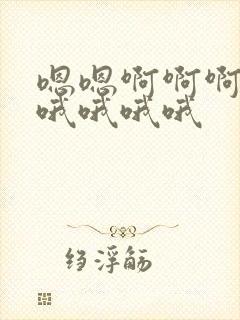 嗯嗯啊啊啊
哦哦哦哦
绉浮觞